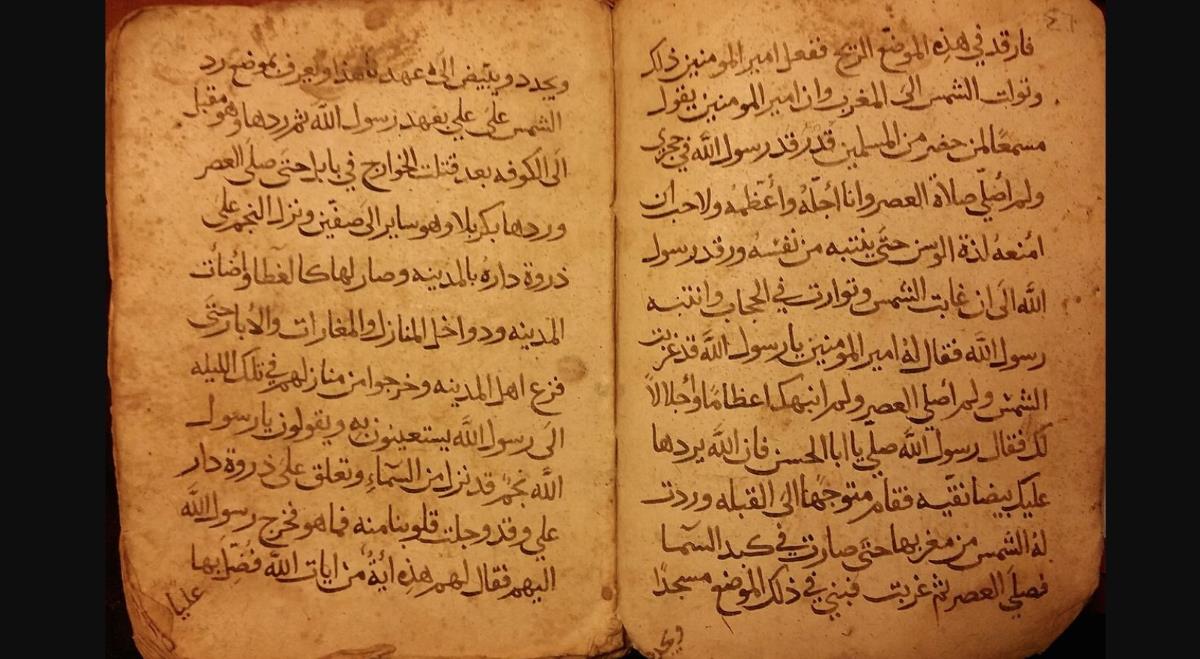 فارقد في هذه الموضع الزيح ففعل امير المومنين ذلك
وتوات الشمس الى المغرب وان امير المومنين يقول
مسمعًا لمن حضر من المسلمين قد رقد رسول الله في حجري
ولم أصلّي صلاة العصر وانا اجلّه وأعظمه ولاحب ان
امنعه لذة الوسن حتى ينتبه من نفسه ورقد رسول
الله الى ان غابت الشمس وتوارت في الحجاب وانتبه
رسول الله فقال له امير المومنين يا رسول الله قد غربت
الشمس ولم أصلي العصر ولم انبهك اعظامًا وأجلالًا
لك فقال رسول الله صلي يا ابا الحسن فان الله يردها
عليك بيضا نقيّه فقام متوجهًا الى القبله وردت
له الشمس من مغربها حتى صارت في كبد السّما
فصلي العصر ثم غربت فبني في ذلك الموضع مسجدًا
ويجدد
ويجدد ويبيّض الى عهدنا هذا ويعرف بموضع رد
الشمس على علي بعهد رسول الله ثم ردها وهو مقبل
الى الكوفه بعد قتلت الخوارج في بابل حتى صلي العصر
وردها بكربلا وهو ساير الى صفّين ونزل النجم على
ذروة داره بالمدينه وصار لها كالغطا واضات
المدينه ودواخل المنازل والمغارات والابار حتى
فزع اهل المدينه وخرجوا من منازلهم في تلك الليله
الى رسول الله يستعينون به ويقولون يا رسول
الله نجم قد نزل من السّماء وتعلق على ذروة دار
علي وقد وجلت قلوبنا منه فما هو فخرج رسول الله
اليهم فقال لهم هذه أية من ايات الله فضل بها
عليّا